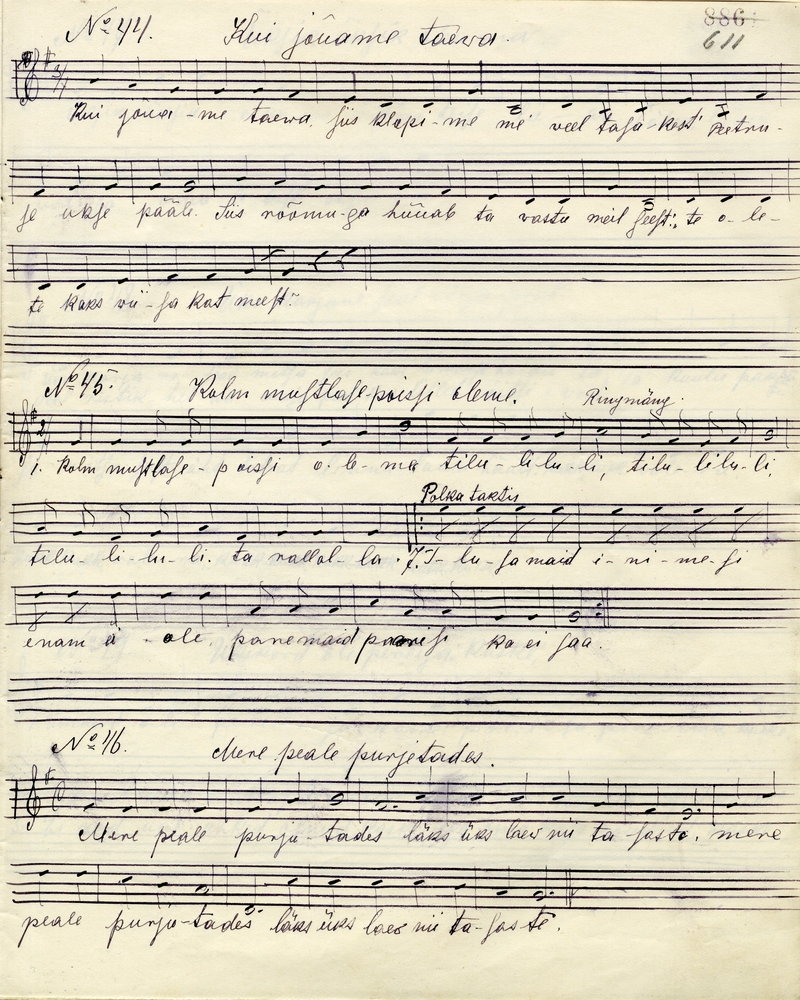 886
611
No 44. Kui jõuame taewa.
Kui jõua - me taewa, siis klopi - me me veel tasa - kest' Peetru -
se ukse pääle. Siis rõõmu-ga hüüab ta vastu meil seest: te o - le -
te kaks wii - sa kat meest:
No 45. Kolm mustlase-poissi oleme. Ringmäng.
1. Kolm mustlase - poissi o - le - me tilu - li lu - li, tilu - lilu - li,
Polka taktis
tilu - li - lu - li. ta rallal - la. I - lu - samaid i - ni - me - si
enam ei - ole, paremaid ka ei saa.
No 46. Mere peale purjetades.
Mere peale purje - tades läks üks laev nii ta - saste, mere
peale purje - tades läks üks laev nii ta - sas te.